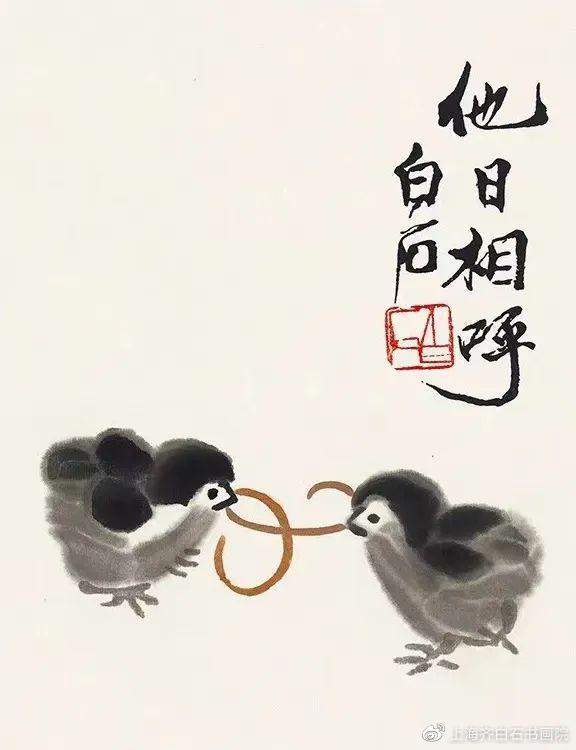 他日相呼
白石
上海齐白石书画院